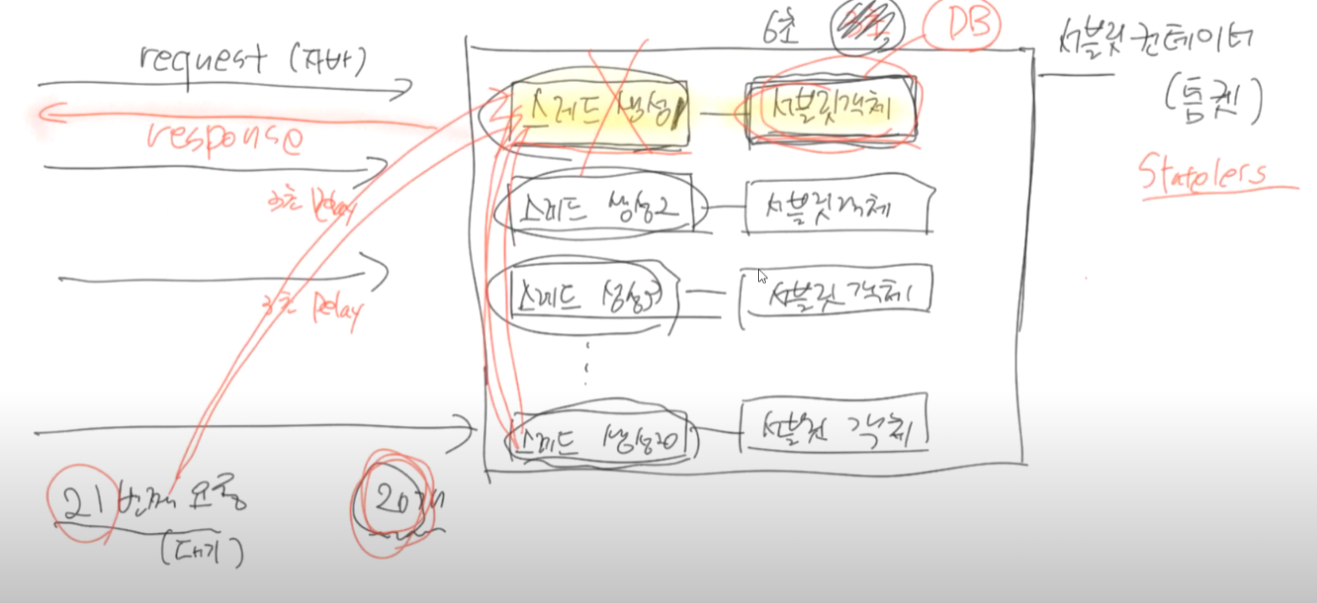 request (자바)
response
3초 Delay
3초 Delay
21번째 요청
(대기)
20개
6초
DB
스레드 생성1
서블릿객체
스레드 생성2
서블릿객체
스레드 생성3
서블릿객체
스레드 생성20
서블릿 객체
서블릿컨테이터
(톰켓)
Stateless